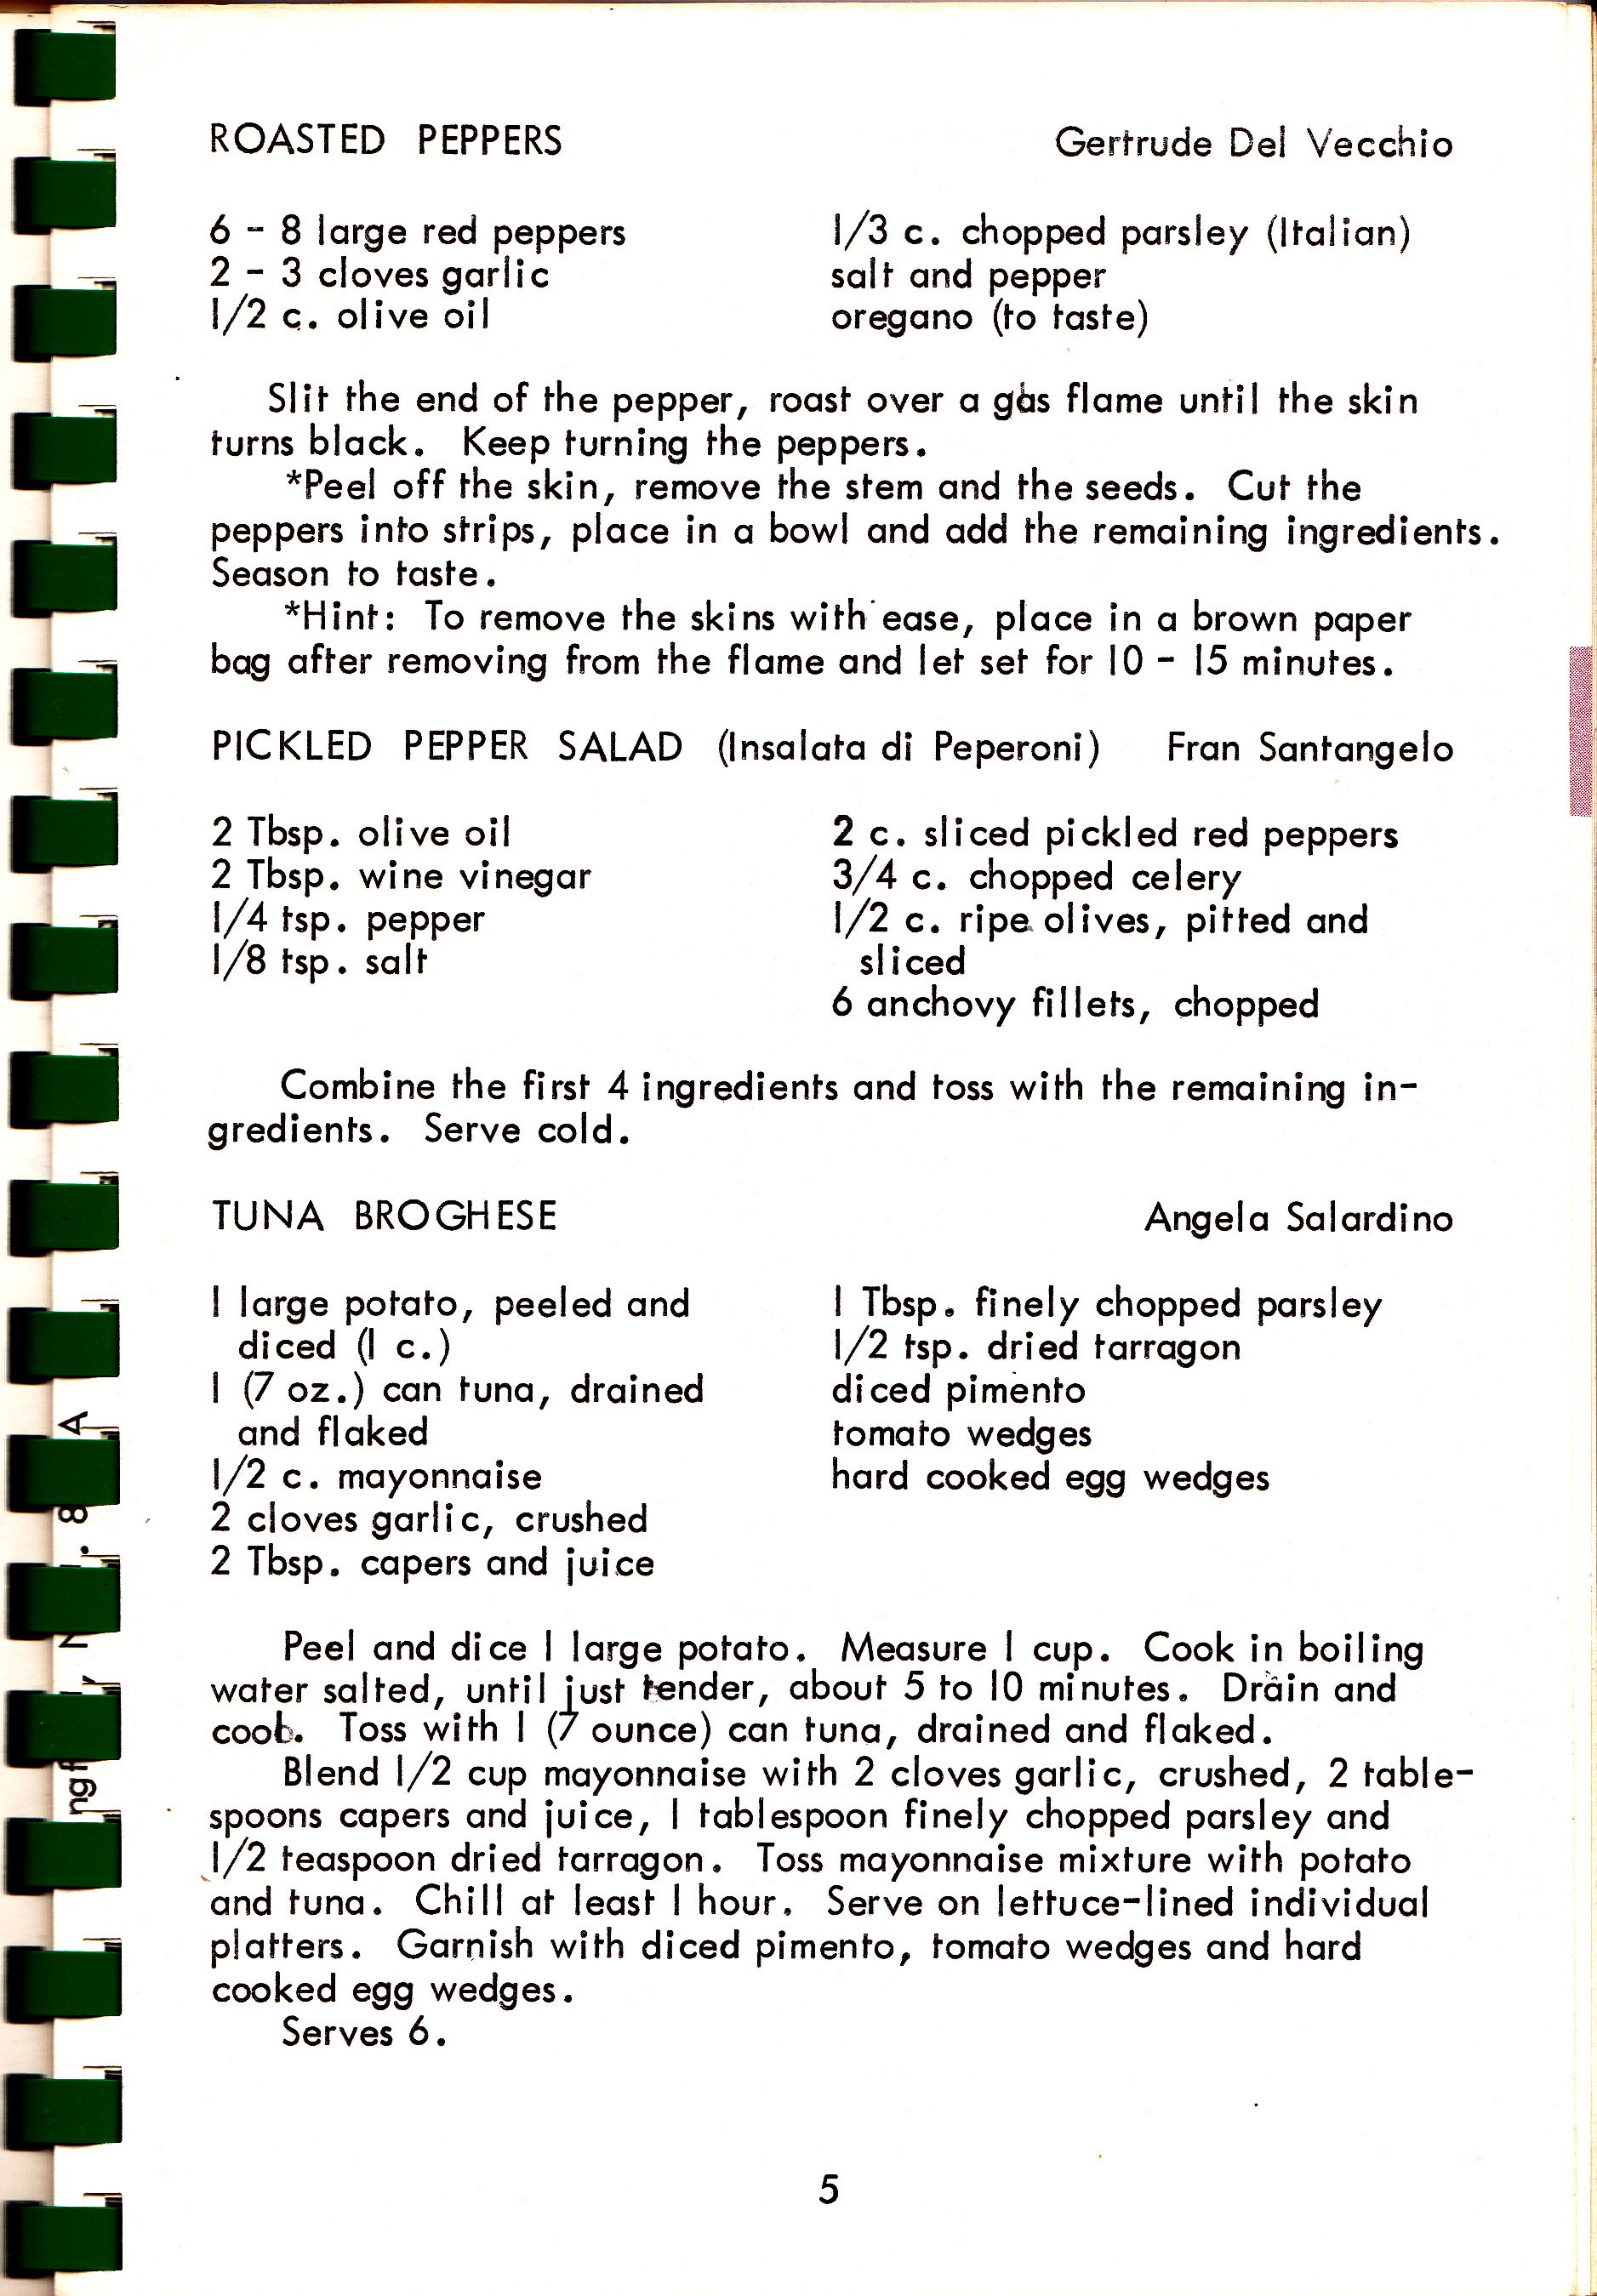 ROASTED PEPPERS Gertrude Del Vecchio
6 - 8 large red peppers
2 - 3 cloves garlic
1/2 c. olive oil
1/3 c. chopped parsley (Italian)
salt and pepper
oregano (to taste)
Slit the end of the pepper, roast over a gas flame until the skin
turns black. Keep turning the peppers.
*Peel off the skin, remove the stem and the seeds. Cut the
peppers into strips, place in a bowl and add the remaining ingredients.
Season to taste.
*Hint: To remove the skins with ease, place in a brown paper
bag after removing from the flame and let set for 10 - 15 minutes.
PICKLED PEPPER SALAD (Insalata di Peperoni) Fran Santangelo
2 Tbsp. olive oil
2 Tbsp. wine vinegar
1/4 tsp. pepper
1/8 tsp. salt
2 c. sliced pickled red peppers
3/4 c. chopped celery
1/2 c. ripe olives, pitted and
sliced
6 anchovy fillets, chopped
Combine the first 4 ingredients and toss with the remaining in-
gredients. Serve cold.
TUNA BROGHESE Angela Salardino
1 large potato, peeled and
diced (1 c.)
1 (7 oz.) can tuna, drained
and flaked
1/2 c. mayonnaise
2 cloves garlic, crushed
2 Tbsp. capers and juice
1 Tbsp. finely chopped parsley
1/2 tsp. dried tarragon
diced pimento
tomato wedges
hard cooked egg wedges
Peel and dice 1 large potato. Measure 1 cup. Cook in boiling
water salted, until just tender, about 5 to 10 minutes. Drain and
cool. Toss with 1 (7 ounce) can tuna, drained and flaked.
Blend 1/2 cup mayonnaise with 2 cloves garlic, crushed, 2 table-
spoons capers and juice, 1 tablespoon finely chopped parsley and
1/2 teaspoon dried tarragon. Toss mayonnaise mixture with potato
and tuna. Chill at least 1 hour. Serve on lettuce-lined individual
platters. Garnish with diced pimento, tomato wedges and hard
cooked egg wedges.
Serves 6.
5